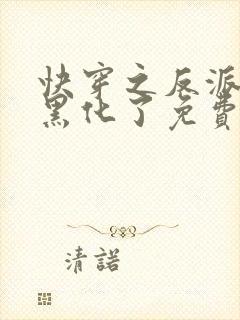 快穿之反派
黑化了免費
清諾